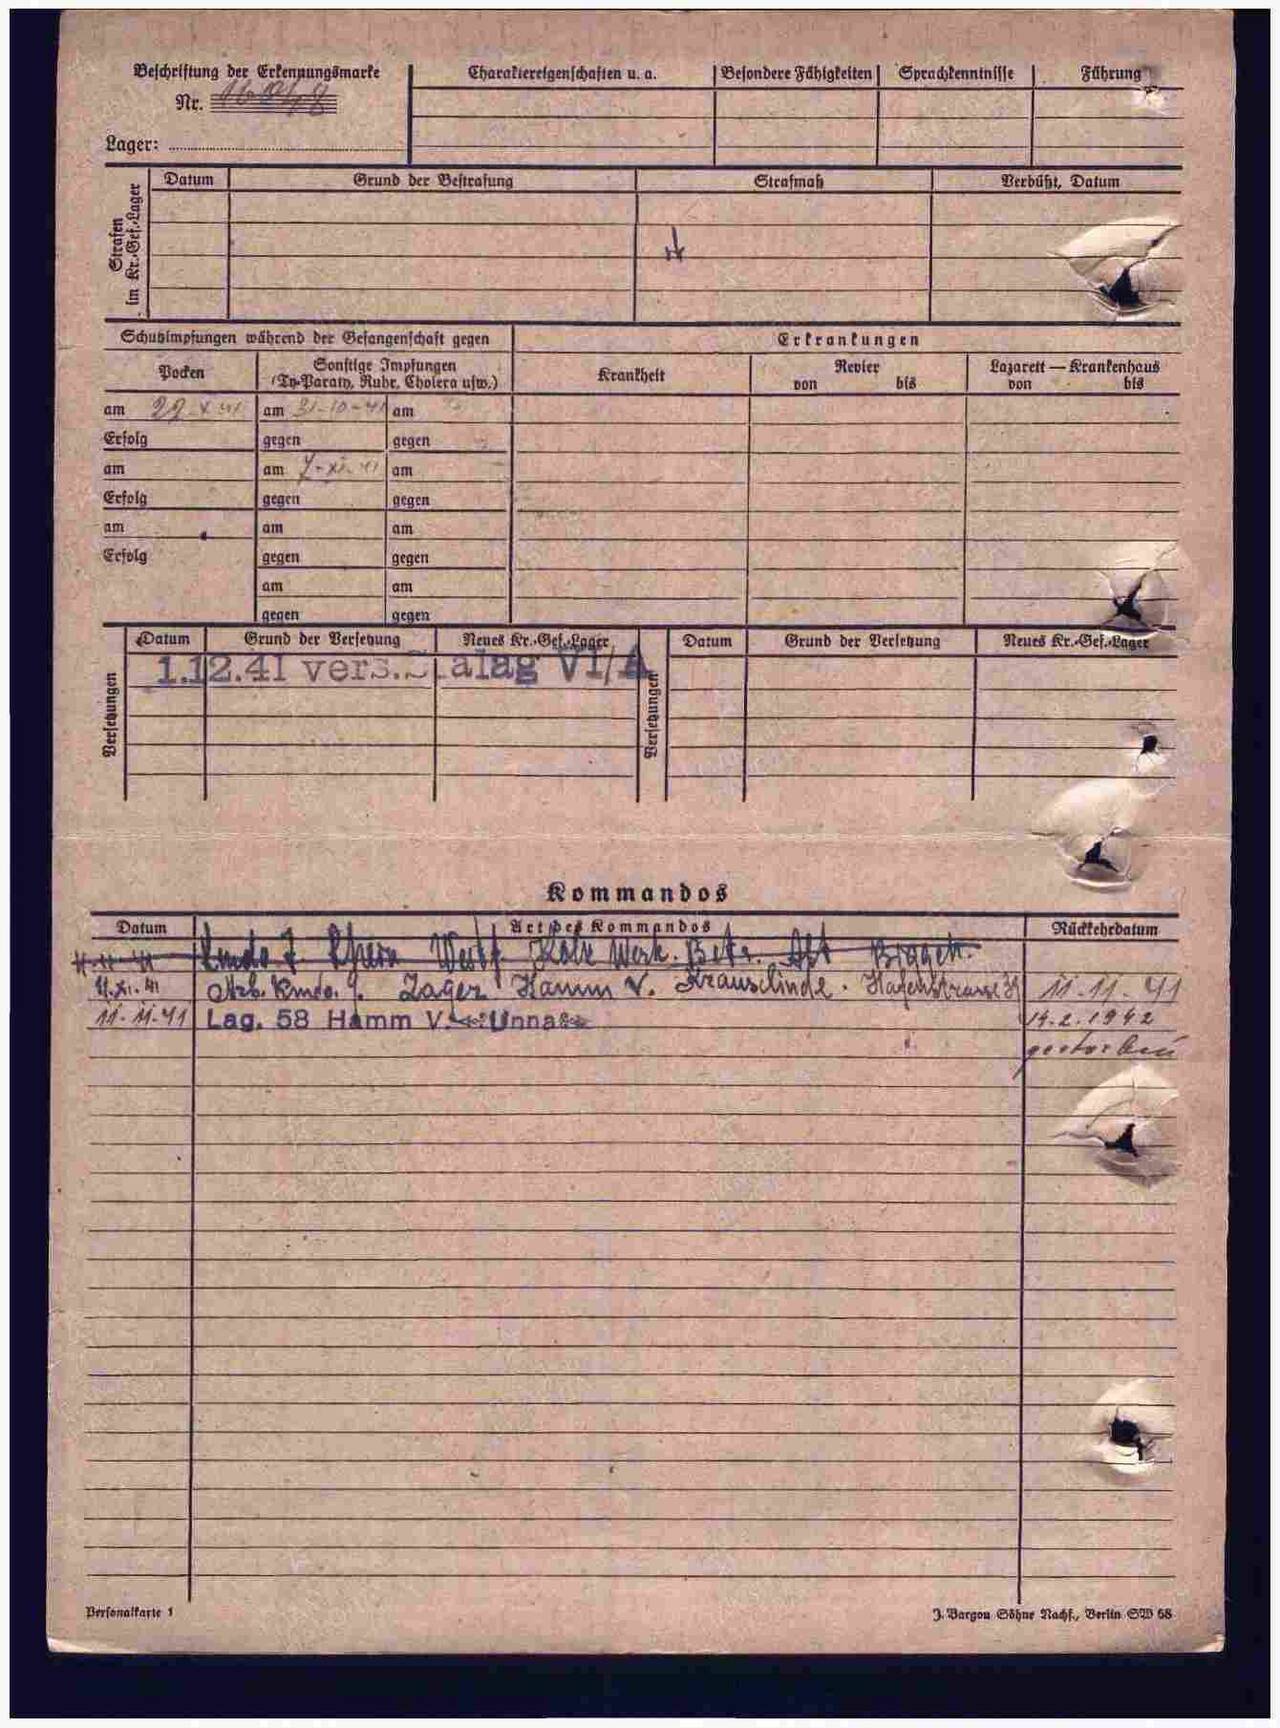 Beschriftung der Erkennungsmarke
Nr. 16 048
Lager:
Charaktereigenschaften u. a.
Besondere Fähigkeiten
Sprachkenntnisse
Führung
Strafen
im Kr.-Gef.-Lager
Datum
Grund der Bestrafung
Strafmaß
Verbüßt, Datum
Schutzimpfungen während der Gefangenschaft gegen
Erkrankungen
Pocken
Sonstige Impfungen
(Ty-Paraty, Ruhr, Cholera usw.)
Krankheit
Revier
von bis
Lazarett — Krankenhaus
von bis
am 22 X 41 am 31-10-41 am
Erfolg gegen gegen
am am 7-XI-41 am
Erfolg gegen gegen
am am am
Erfolg gegen gegen
am am
gegen gegen
Versetzungen
Datum Grund der Versetzung Neues Kr.-Gef.-Lager
1.12.41 vers. Stalag VI/A
Versetzungen
Datum Grund der Versetzung Neues Kr.-Gef.-Lager
Kommandos
Datum Art des Kommandos Rückkehrdatum
Kmdo Westf. Werk.
11.XI.41 Arb. Kmdo. Lager Hamm V. Hafenstrasse 11-11-41
11-11-41 Lag. 58 Hamm V. Unna 14.2.1942
gestorben
Personalkarte 1
J. Bargou Söhne Nachf., Berlin SW 68